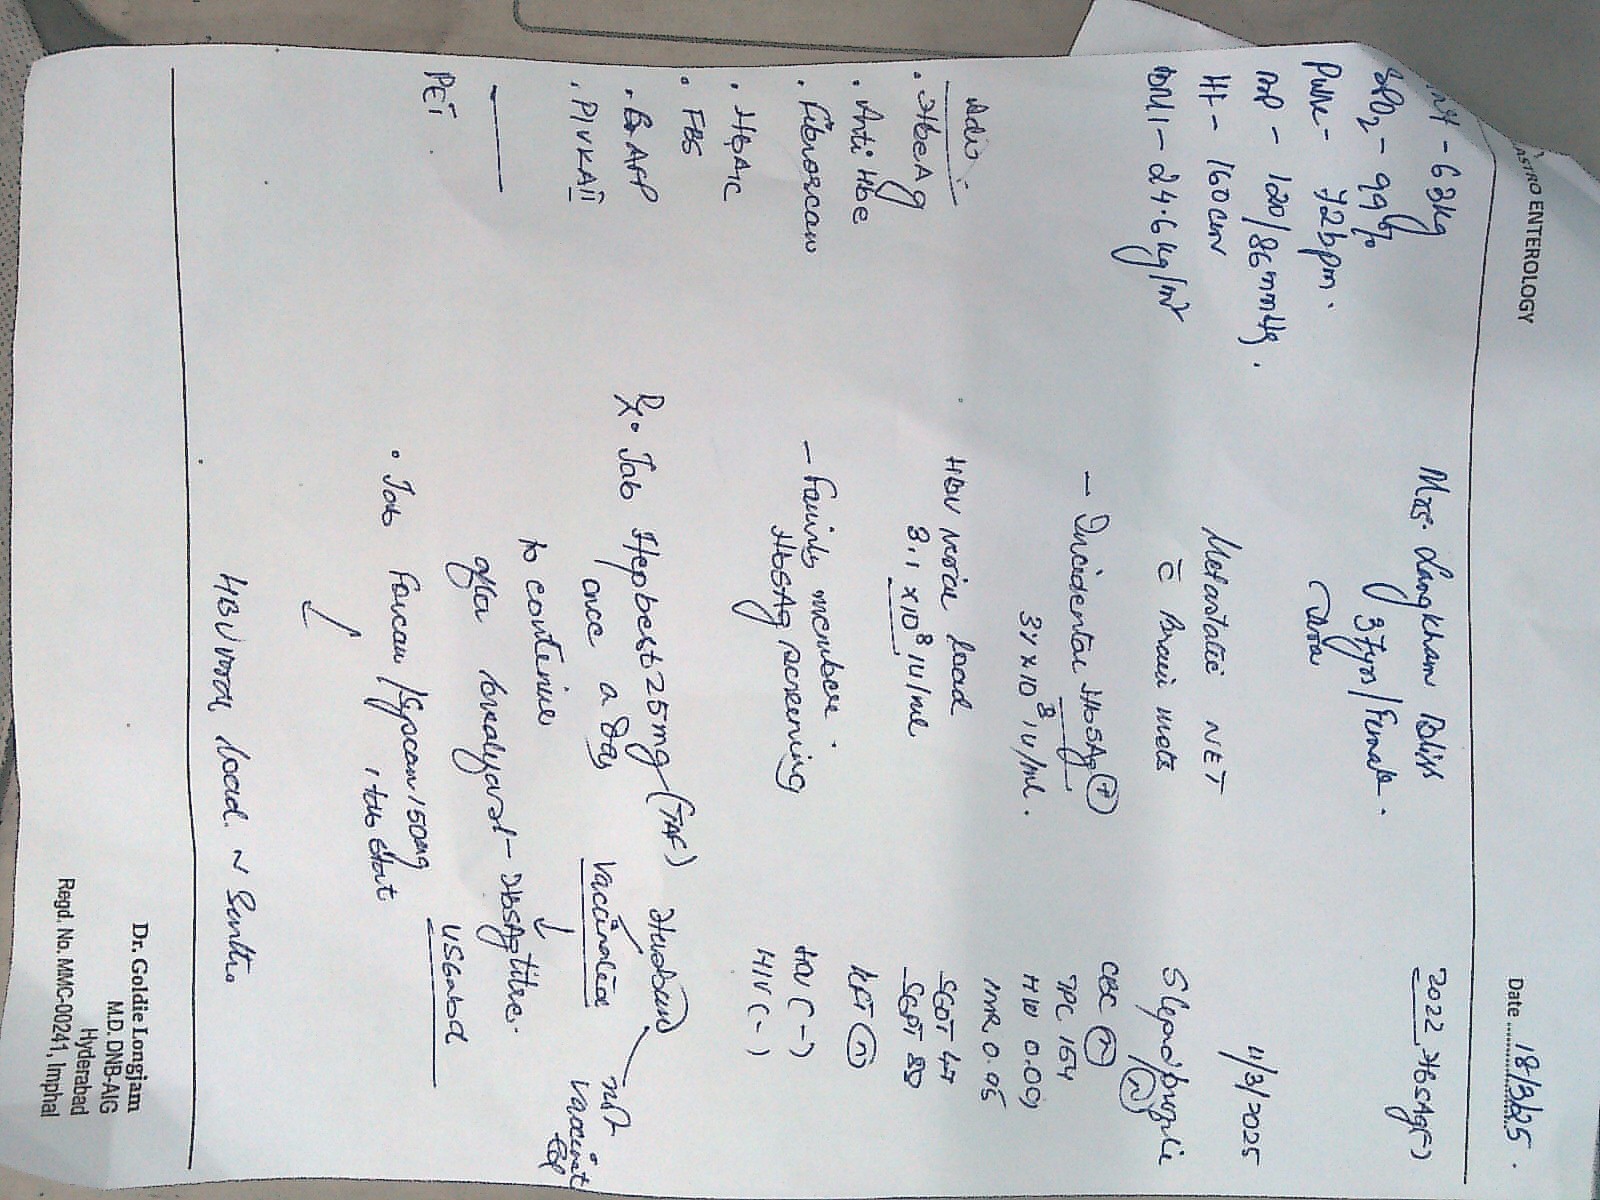 GASTRO ENTEROLOGY
Date 18/3/25.
- 63kg
SPO2 - 99%
Pulse - 72bpm.
BP - 120/86mmHg.
Ht - 160cm
BMI - 24.6kg/m²
Mrs. Langkham Bliss
37yrs/Female.
2022 HBsAg(-)
Metastatic NET
c̄ Brain mets
- Incidental HbSAg (+)
34 x 10^8 IU/ml.
HBV viral load
3.1 x 10^8 IU/ml
- Family member
HbSAg screening
11/3/2025
S. lipid profile (n)
CBC (n)
TPC 154
INR 0.95
SGOT 47
SGPT 80
KFT (n)
HCV (-)
HIV (-)
Adv:-
• HbeAg
• Anti Hbe
• Fibroscan
• HbA1c
• FBS
• AFP
• PIVKA II
PET
Rx • Tab Hepbest 25mg (TAF)
once a day
to continue
after
HbSAg titre.
Husband
Vaccinated
not
USG abd
• Tab Forcan / Sypcan 150mg
1 tab stat
HBV viral load
Dr. Goldie Longjam
M.D. DNB-AIG
Hyderabad
Regd. No. MMC-00241, Imphal